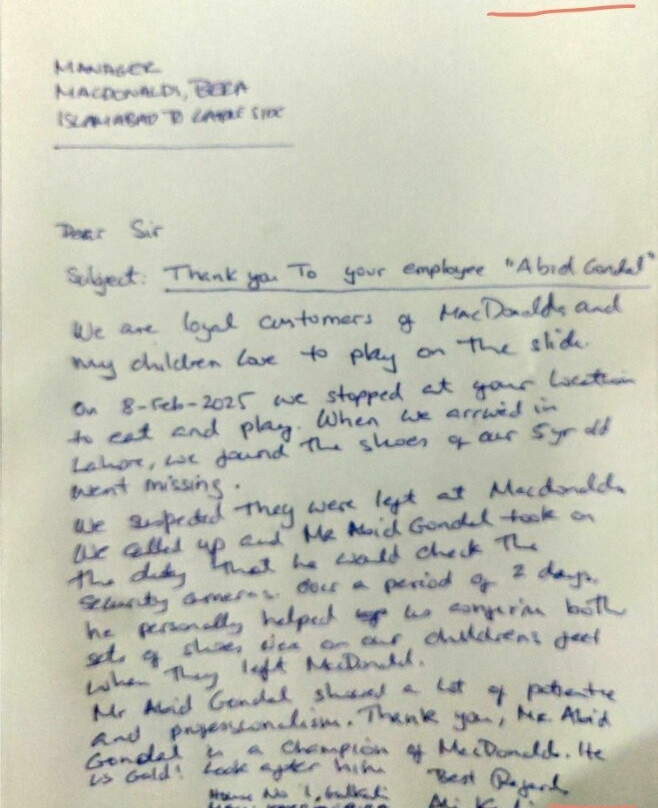 MANAGER
MACDONALDS, BERA
ISLAMABAD TO LAHORE SIDE
Dear Sir
Subject: Thank you To your employee "Abid Gondal"
We are loyal customers of MacDonalds and
my children love to play on the slide.
On 8-Feb-2025 we stopped at your location
to eat and play. When we arrived in
Lahore, we found the shoes of our 5yr old
went missing.
We suspected they were left at Macdonalds
We called up and Mr Abid Gondal took on
the duty that he would check the
security cameras. Over a period of 2 days,
he personally helped us confirm both
sets of shoes were on our childrens feet
when they left McDonald.
Mr Abid Gondal showed a lot of patience
and professionalism. Thank you, Mr. Abid
Gondal is a champion of MacDonalds. He
is Gold! Look after him
Best Regards
House No 1,